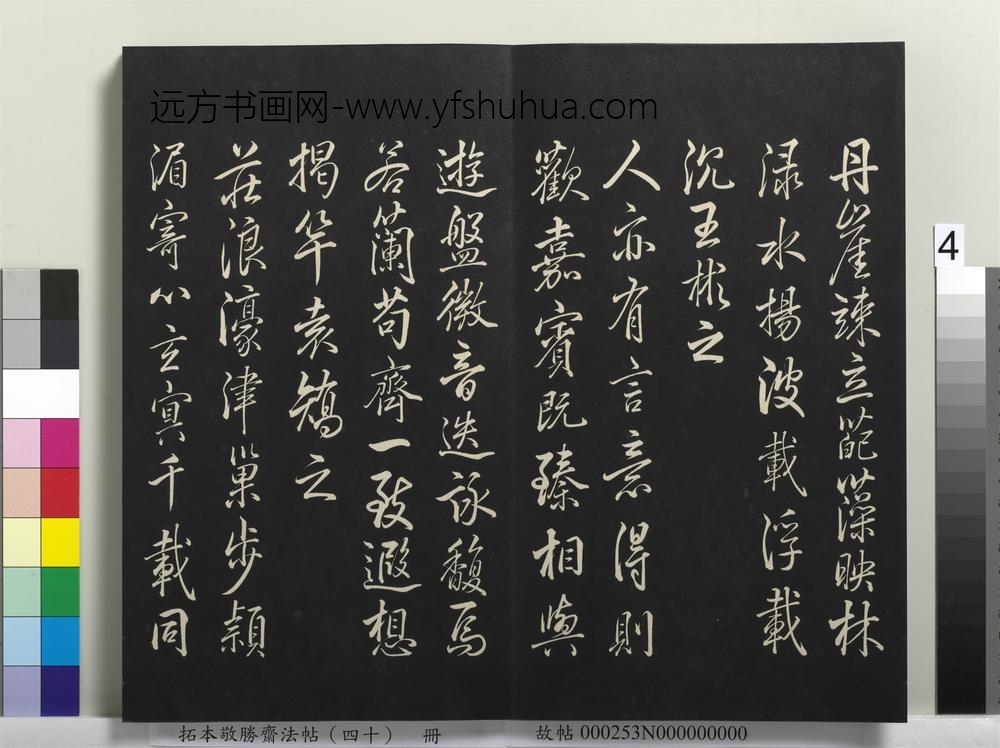 远方书画网-www.yfshuhua.com
丹崖竦立葩藻映林
渌水揚波載浮載
沉王彬之
人亦有言意得則
歡嘉賓既臻相與
遊盤微音迭詠馥焉
若蘭苟齊一致遐想
揭竿袁矯之
莊浪濠津巢步潁
湄寄心玄冥千載同
4
拓本敬勝齋法帖(四十) 冊
故帖 000253N000000000